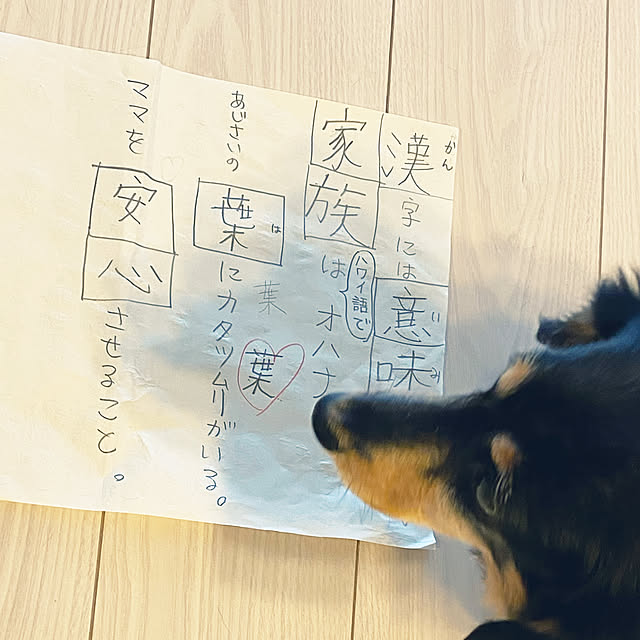 漢字には意味
かん
い
み
家族はオハナ
ハワイ語で
葉
葉
あじさいの葉にカタツムリがいる。
は
ママを安心させること。